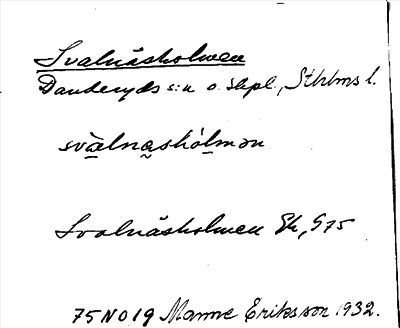 Svalnäsholmen
Danderyds s:n o. skpl., Sthlms l.
svàlnashòlmən
Svalnäsholmen Ek, S75
75 NO 19 Manne Eriksson 1932.